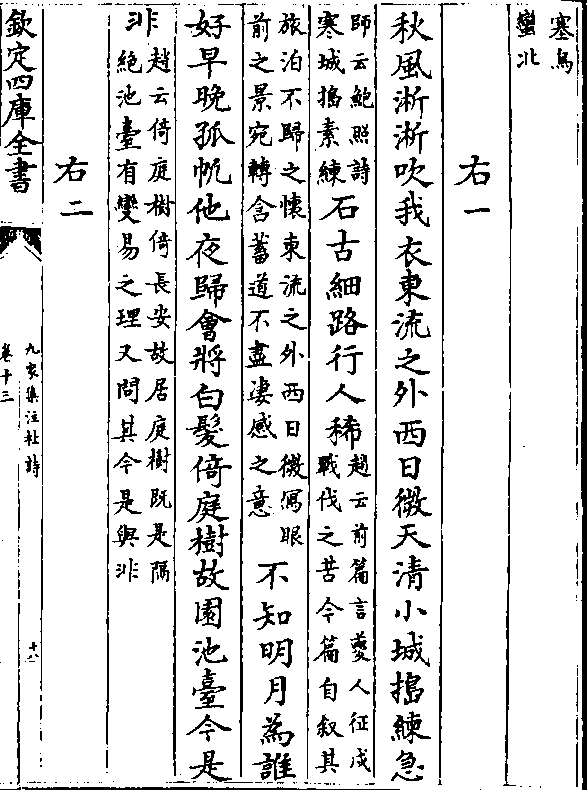 塞鳥
蠻北
右一
秋風淅淅吹我衣東流之外西日微天清小城搗練急
師云鮑照詩
寒城搗素練
石古細路行人稀
趙云前篇言夔人征戍
戰伐之苦今篇自叙其
旅泊不歸之懷東流之外西日微寫眼
前之景宛轉含蓄道不盡凄感之意
不知明月為誰
好早晚孤帆他夜歸會將白髮倚庭樹故園池臺今是
非
趙云倚庭樹倚長安故居庭樹既是隔
絶池臺有變易之理又問其今是與非
右二
欽定四庫全書
九家集注杜詩
卷十三
十八